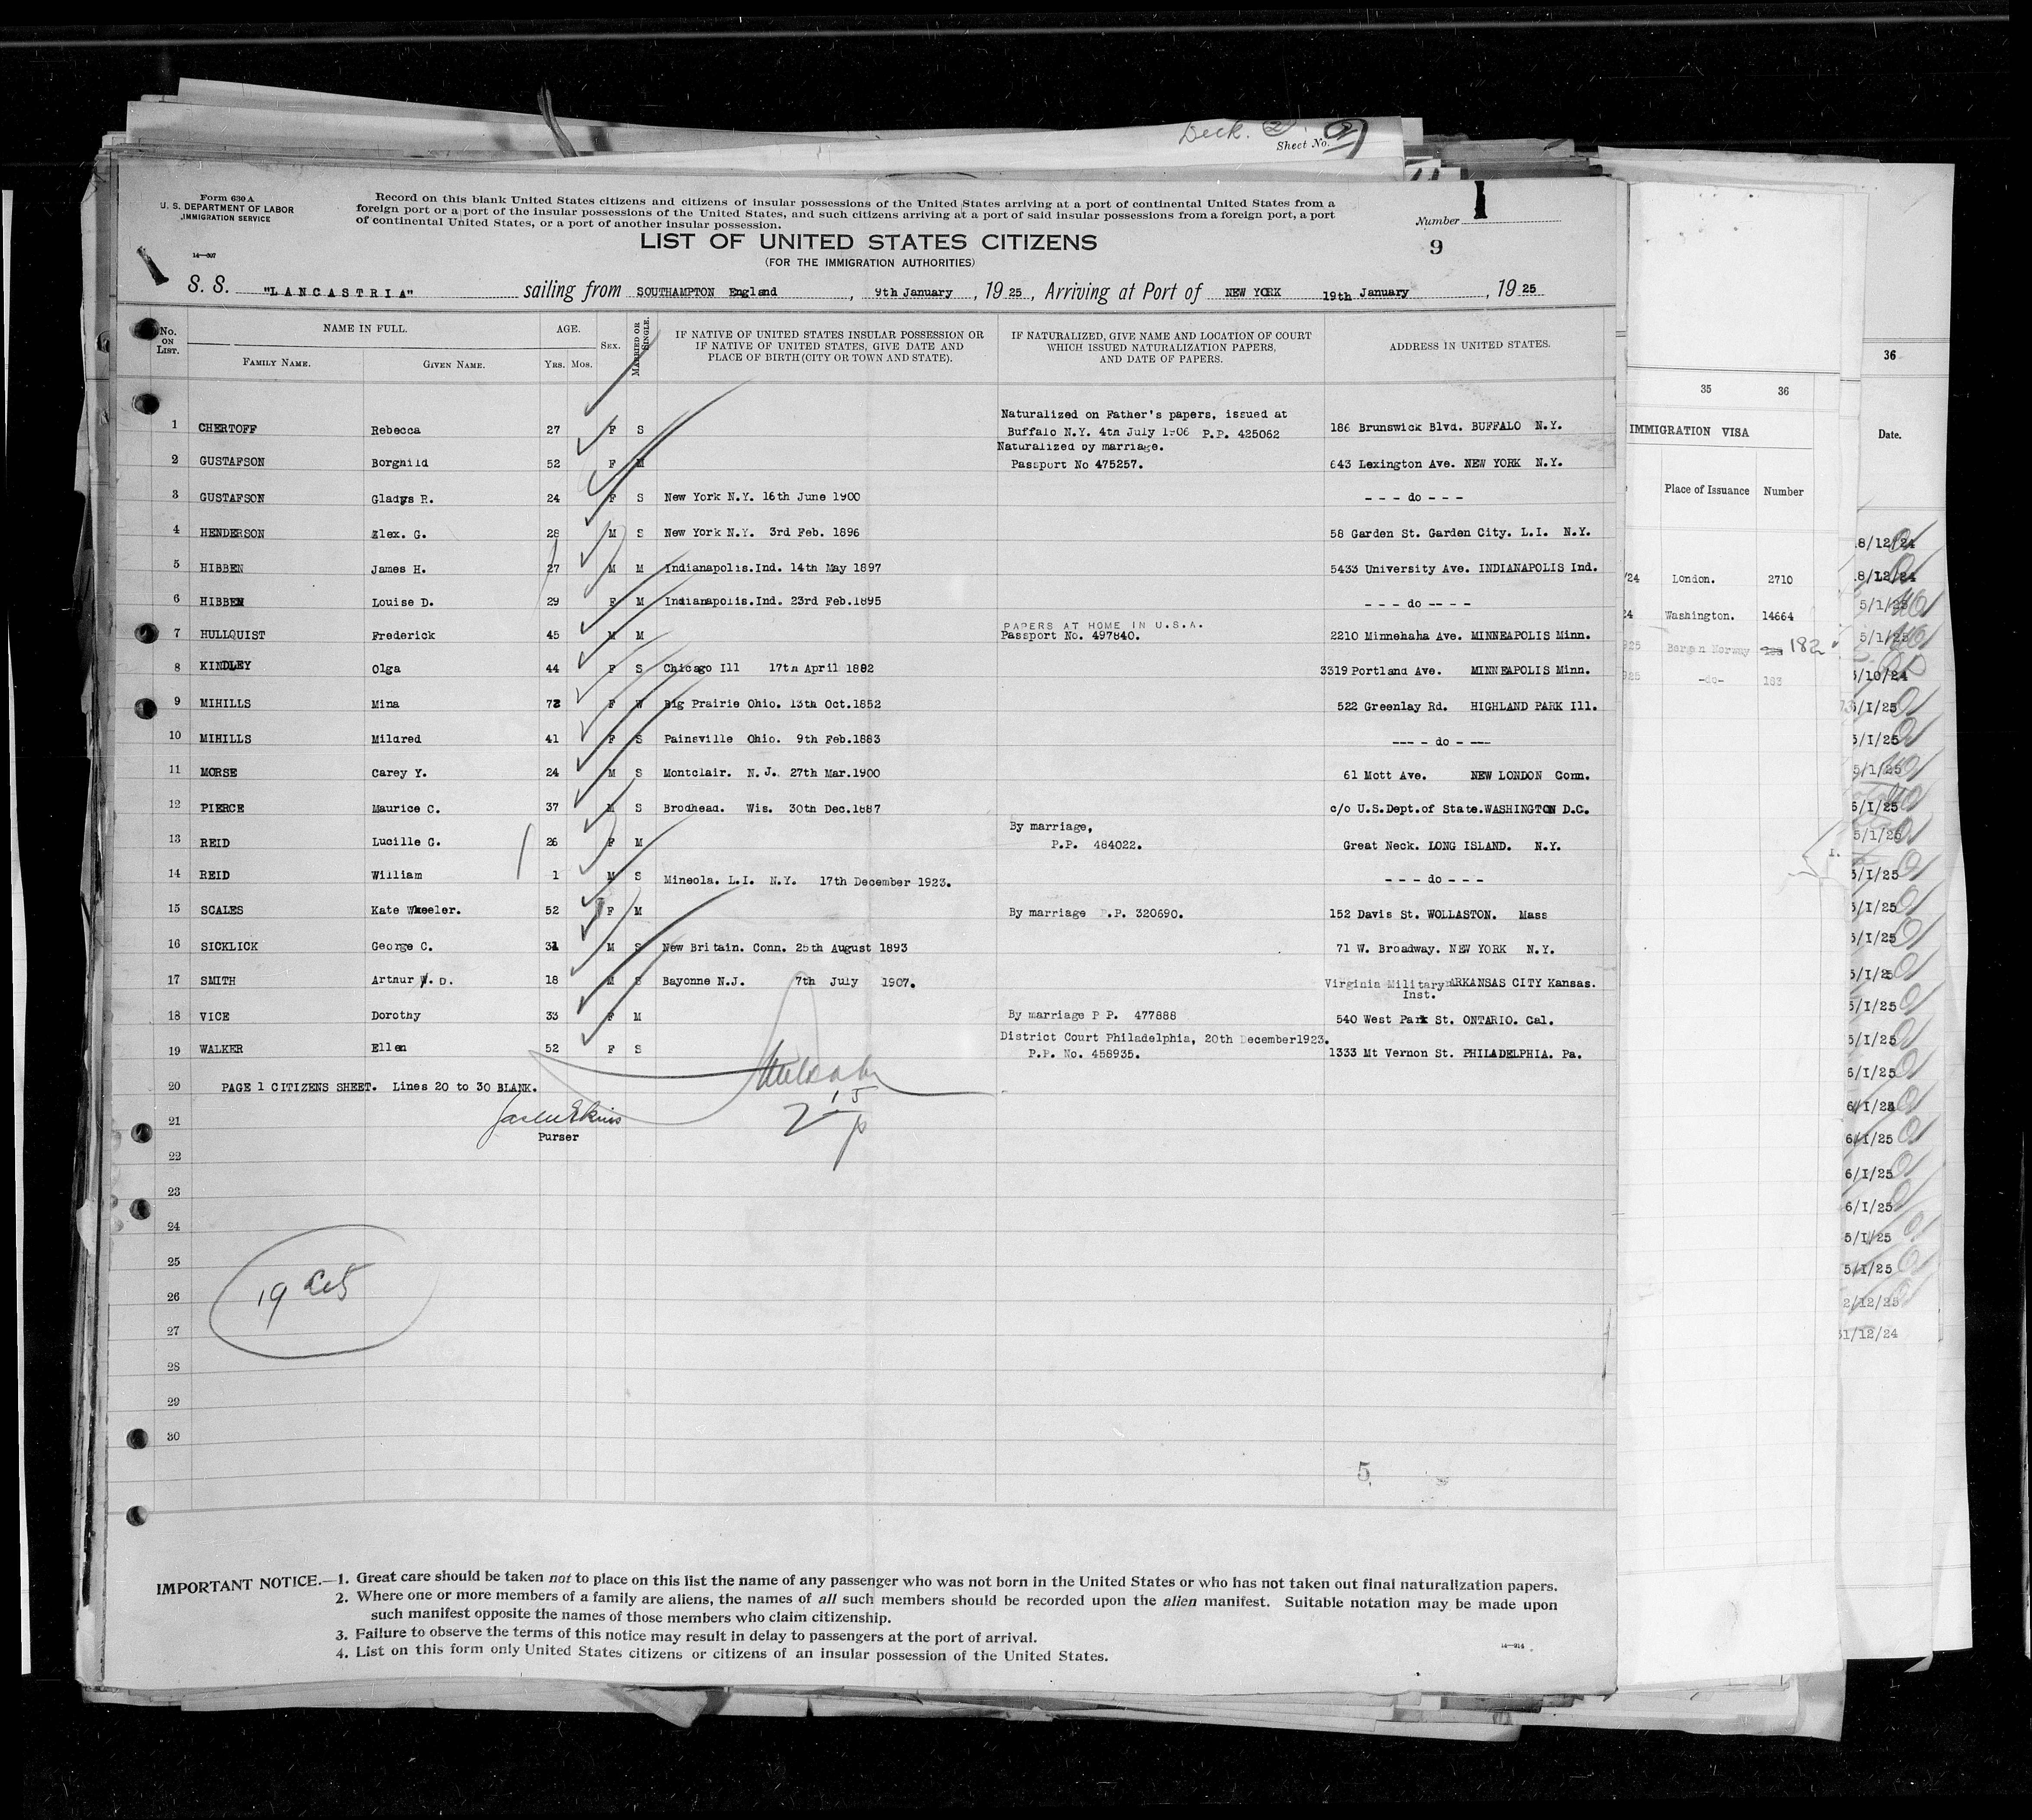 Deck. 2
Sheet No. 9
Form 630 A
U. S. DEPARTMENT OF LABOR
IMMIGRATION SERVICE
14—397
Record on this blank United States citizens and citizens of insular possessions of the United States arriving at a port of continental United States from a
foreign port or a port of the insular possessions of the United States, and such citizens arriving at a port of said insular possessions from a foreign port, a port
of continental United States, or a port of another insular possession.
Number 1
9
LIST OF UNITED STATES CITIZENS
(FOR THE IMMIGRATION AUTHORITIES)
S. S. "LANCASTRIA" sailing from SOUTHAMPTON England, 9th January, 1925, Arriving at Port of NEW YORK 19th January, 1925
No. ON LIST. NAME IN FULL. FAMILY NAME. GIVEN NAME. AGE. YRS. MOS. SEX. MARRIED OR SINGLE. IF NATIVE OF UNITED STATES INSULAR POSSESSION OR IF NATIVE OF UNITED STATES, GIVE DATE AND PLACE OF BIRTH (CITY OR TOWN AND STATE). IF NATURALIZED, GIVE NAME AND LOCATION OF COURT WHICH ISSUED NATURALIZATION PAPERS, AND DATE OF PAPERS. ADDRESS IN UNITED STATES.
1 CHERTOFF Rebecca 27 F S Naturalized on Father's papers, issued at Buffalo N.Y. 4th July 1906 P.P. 425062 186 Brunswick Blvd. BUFFALO N.Y.
2 GUSTAFSON Borghild 52 F M Naturalized by marriage. Passport No 475257. 643 Lexington Ave. NEW YORK N.Y.
3 GUSTAFSON Gladys R. 24 F S New York N.Y. 16th June 1900 - - - do - - -
4 HENDERSON Alex. G. 28 M S New York N.Y. 3rd Feb. 1896 58 Garden St. Garden City. L.I. N.Y.
5 HIBBEN James H. 27 M M Indianapolis.Ind. 14th May 1897 5433 University Ave. INDIANAPOLIS Ind.
6 HIBBEN Louise D. 29 F M Indianapolis.Ind. 23rd Feb.1895 - - - do -- - -
7 HULLQUIST Frederick 45 M M PAPERS AT HOME IN U.S.A. Passport No. 497840. 2210 Minnehaha Ave. MINNEAPOLIS Minn.
8 KINDLEY Olga 44 F S Chicago Ill 17th April 1882 3319 Portland Ave. MINNEAPOLIS Minn.
9 MIHILLS Mina 72 F W Big Prairie Ohio. 13th Oct.1852 522 Greenlay Rd. HIGHLAND PARK Ill.
10 MIHILLS Mildred 41 F S Painsville Ohio. 9th Feb.1883 --- - do - ---
11 MORSE Carey Y. 24 M S Montclair. N.J. 27th Mar.1900 61 Mott Ave. NEW LONDON Conn.
12 PIERCE Maurice C. 37 M S Brodhead. Wis. 30th Dec.1887 c/o U.S.Dept.of State.WASHINGTON D.C.
13 REID Lucille G. 26 F M By marriage, P.P. 484022. Great Neck. LONG ISLAND. N.Y.
14 REID William 1 M S Mineola. L.I. N.Y. 17th December 1923. - - - do - - -
15 SCALES Kate Wheeler. 52 F M By marriage P.P. 320690. 152 Davis St. WOLLASTON. Mass
16 SICKLICK George C. 31 M S New Britain. Conn. 25th August 1893 71 W. Broadway. NEW YORK N.Y.
17 SMITH Arthur W. D. 18 M S Bayonne N.J. 7th July 1907. Virginia Military Inst. ARKANSAS CITY Kansas.
18 VICE Dorothy 33 F M By marriage P P. 477888 540 West Park St. ONTARIO. Cal.
19 WALKER Ellen 52 F S District Court Philadelphia, 20th December1923. P.P. No. 458935. 1333 Mt Vernon St. PHILADELPHIA. Pa.
20 PAGE 1 CITIZENS SHEET. Lines 20 to 30 BLANK.
21
Purser
22
23
24
25
26
27
28
29
30
19
5
IMPORTANT NOTICE.—1. Great care should be taken not to place on this list the name of any passenger who was not born in the United States or who has not taken out final naturalization papers.
2. Where one or more members of a family are aliens, the names of all such members should be recorded upon the alien manifest. Suitable notation may be made upon
such manifest opposite the names of those members who claim citizenship.
3. Failure to observe the terms of this notice may result in delay to passengers at the port of arrival.
4. List on this form only United States citizens or citizens of an insular possession of the United States.
14—914
35 36
IMMIGRATION VISA
Place of Issuance Number
/24 London. 2710
24 Washington. 14664
925 Bergen Norway 182
925 -do- 183
36
Date.
8/12/24
8/12/24
5/1/25
5/1/25
/10/24
/1/25
5/1/25
5/1/25
6/1/25
5/1/25
5/1/25
5/1/25
5/1/25
5/1/25
5/1/25
5/1/25
6/1/25
6/1/25
6/1/25
6/1/25
6/1/25
5/1/25
5/1/25
2/12/25
31/12/24